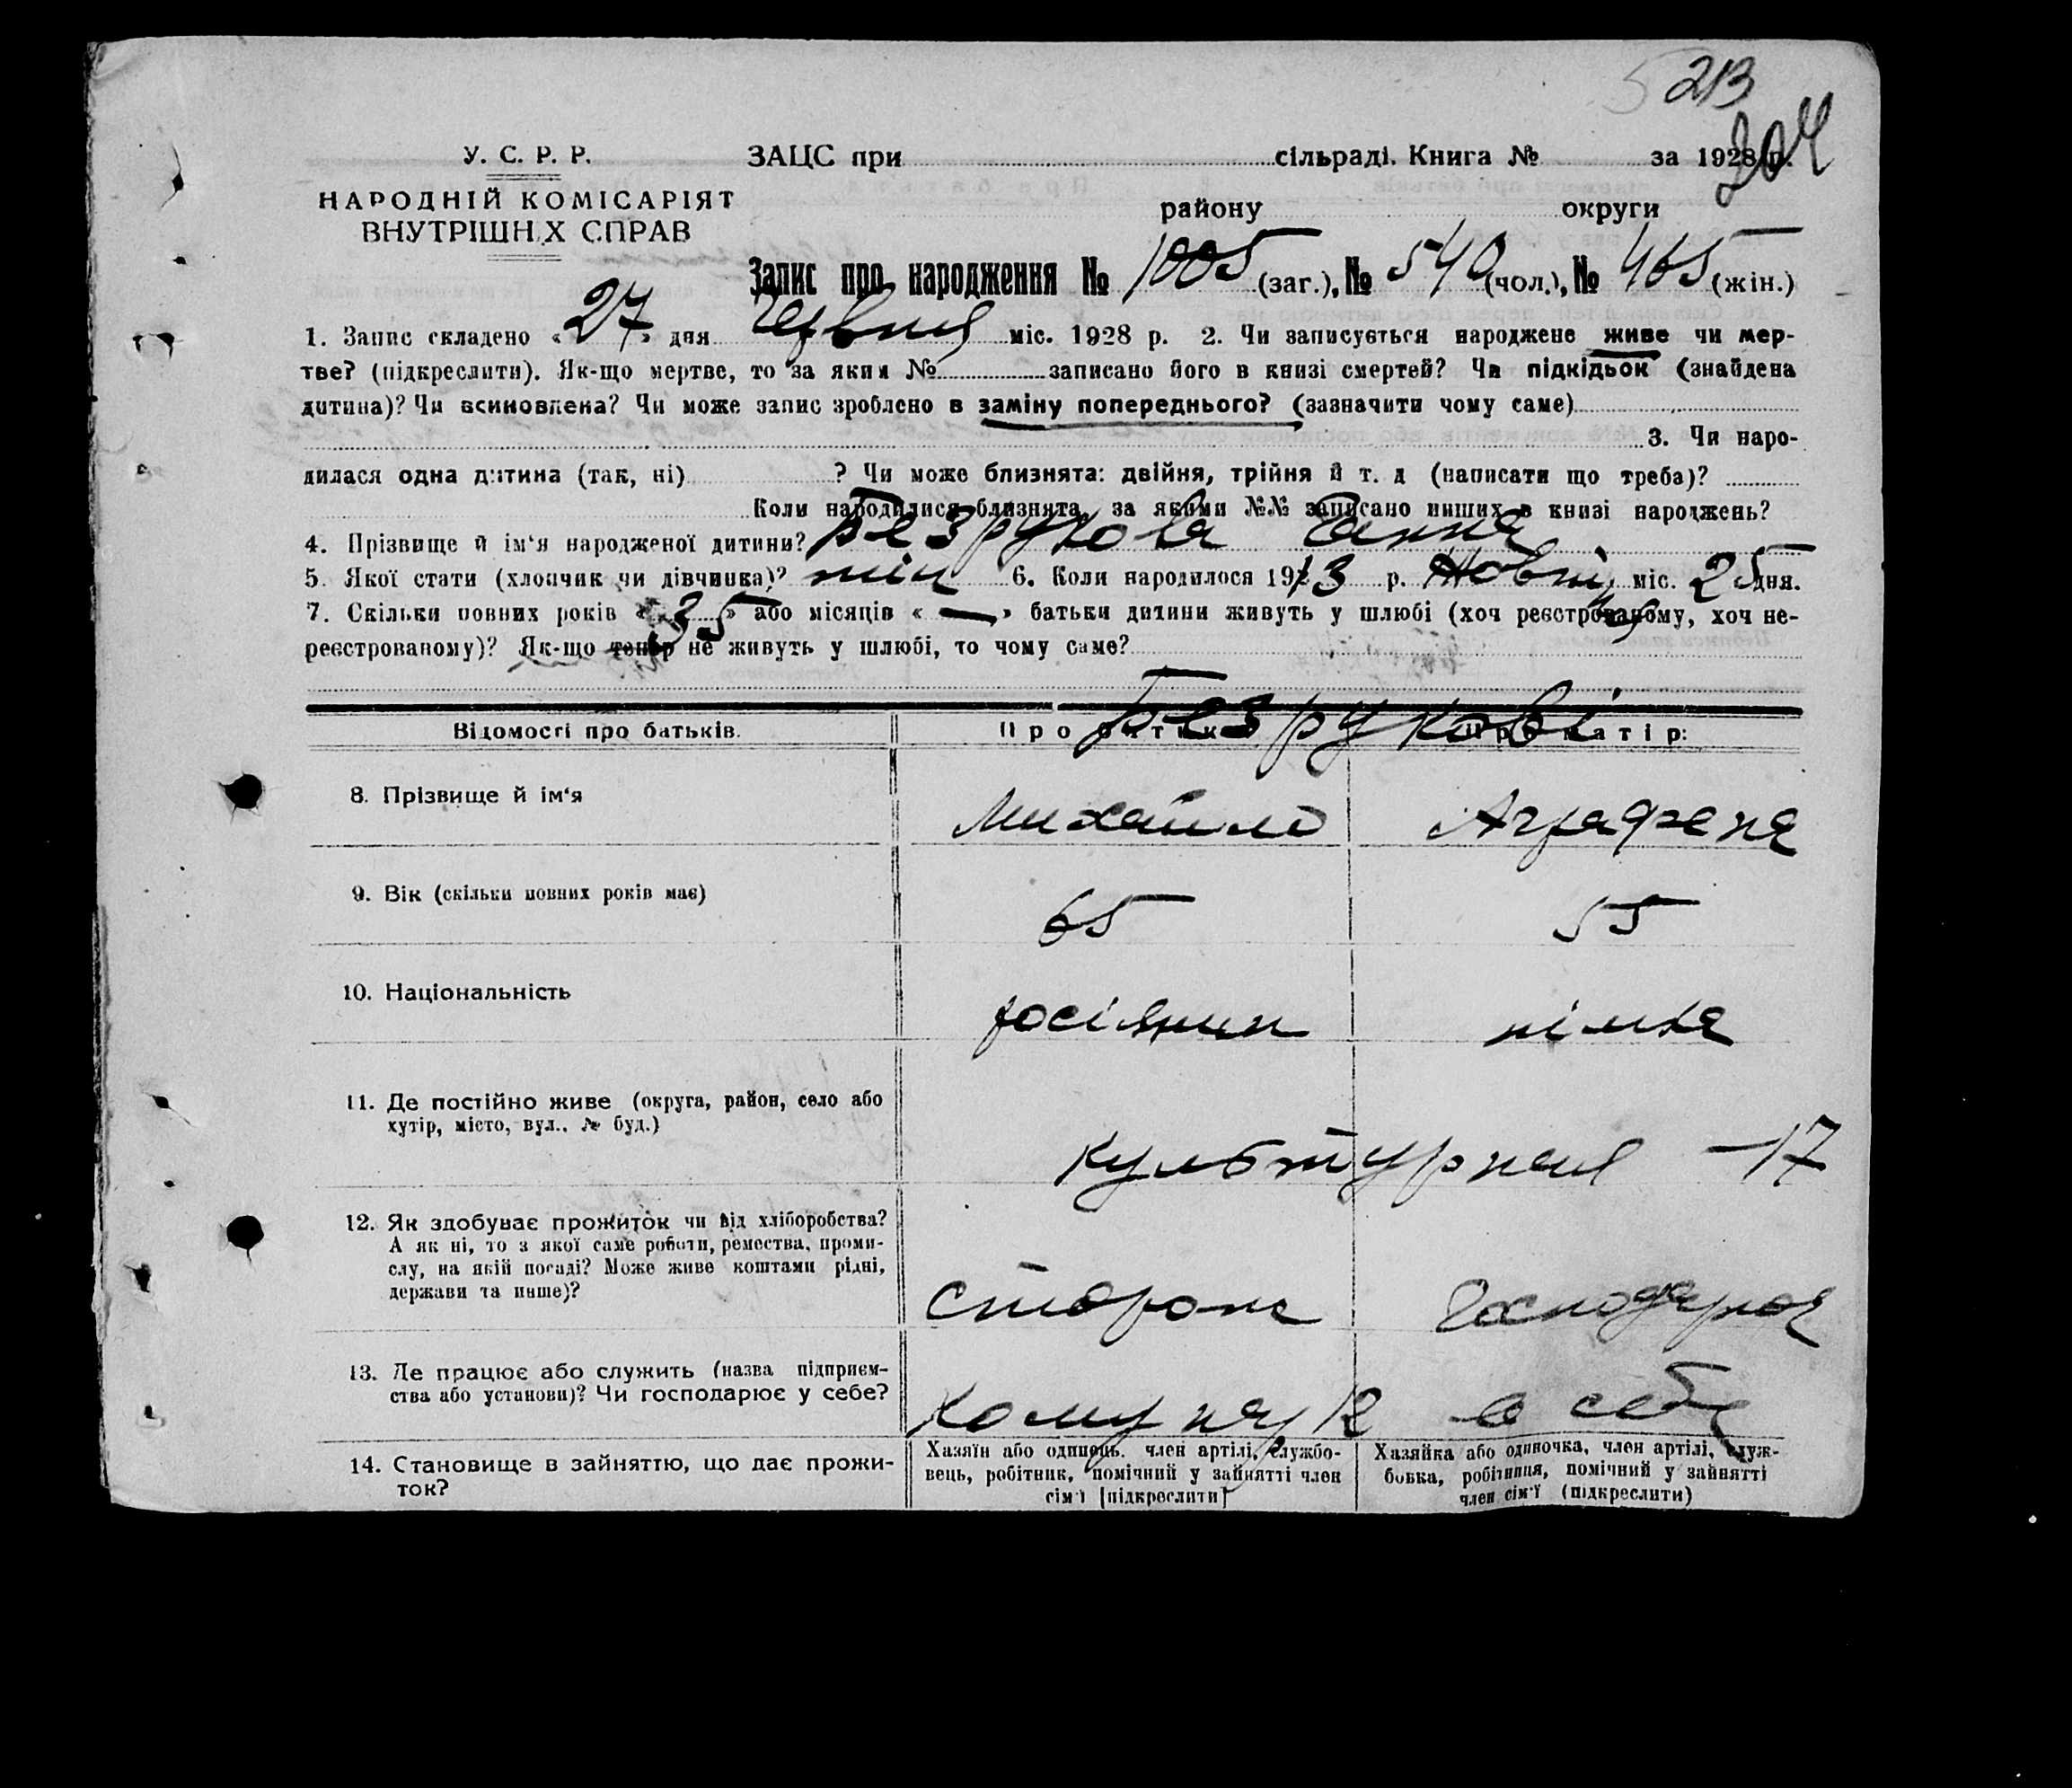 213
204
У. С. Р. Р.
ЗАЦС при сільраді. Книга № за 1928 р.
НАРОДНІЙ КОМІСАРІЯТ
ВНУТРІШНІХ СПРАВ
району округи
Запис про народження № 1005 (заг.), № 540 (чол.), № 465 (жін.)
1. Запис складено «27» дня червня міс. 1928 р. 2. Чи записується народжене живе чи мер-
тве? (підкреслити). Як-що мертве, то за яким № записано його в книзі смертей? Чи підкідьок (знайдена
дитина)? Чи всиновлена? Чи може запис зроблено в заміну попереднього? (зазначити чому саме)
3. Чи наро-
дилася одна дитина (так, ні) ? Чи може близнята: двійня, трійня й т. д (написати що треба)?
Коли народилися близнята, за якими №№ записано инших в книзі народжень?
4. Прізвище й ім‘я народженої дитини? Безрукова Ганна
5. Якої стати (хлопчик чи дівчинка)? жін 6. Коли народилося 1913 р. Жовтня міс. 25 дня.
7. Скільки повних років «35» або місяців « — » батьки дитини живуть у шлюбі (хоч реєстрованому, хоч не-
реєстрованому)? Як-що тепер не живуть у шлюбі, то чому саме?
Безрукові
Відомості про батьків. Про батька Про матір:
8. Прізвище й ім‘я Михайло Аграфена
9. Вік (скільки повних років має) 65 55
10. Національність росіянин німка
11. Де постійно живе (округа, район, село або
хутір, місто, вул., № буд.) Культурная - 17
12. Як здобуває прожиток чи від хліборобства?
А як ні, то з якої саме роботи, ремества, проми-
слу, на якій посаді? Може живе коштами рідні,
держави та инше)? сторож Господарка
13. Де працює або служить (назва підприєм-
ства або установи)? Чи господарює у себе? в себе
14. Становище в зайняттю, що дає прожи-
ток?
Хазяїн або одинець. член артілі, службо-
вець, робітник, помічний у зайнятті член
сім‘ї [підкреслити]
Хазяйка або одиночка, член артілі, служ-
бовка, робітниця, помічний у зайнятті
член сім‘ї (підкреслити)